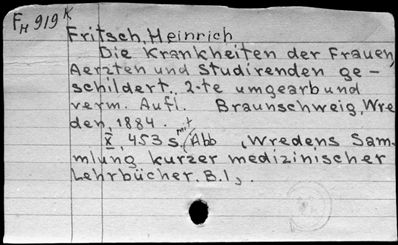 FH 919 K
Fritsch, Heinrich
Die Krankheiten der Frauen,
Aerzten und Studirenden ge-
schildert. 2-te umgearb und
verm. Aufl. Braunschweig, Wre
den, 1884.
X, 453 s. mit Abb , Wredens Sam-
mlung kurzer medizinischer
Lehrbücher. B. I, .